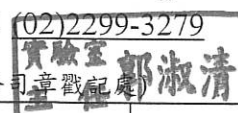 (02)2299-3279
實驗室
主任 郭淑清
司章戳記處)